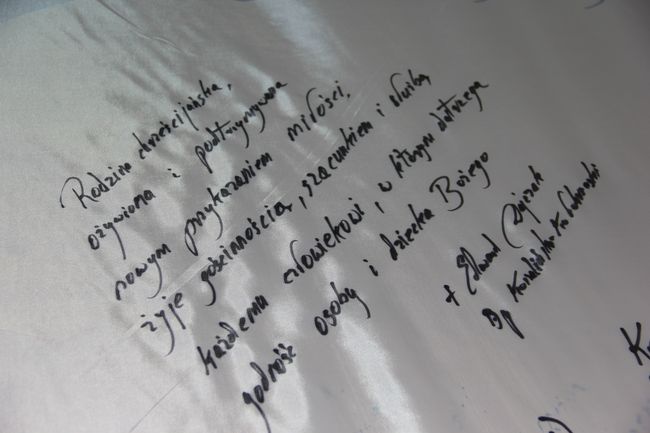 Rodzina chrześcijańska,
ożywiona i podtrzymywana
nowym przykazaniem miłości,
żyje gościnnością, szacunkiem i służbą
każdemu człowiekowi, w którym dostrzega
godność osoby i dziecka Bożego
+ Edward
Bp Koszalińsko-Kołobrzeski